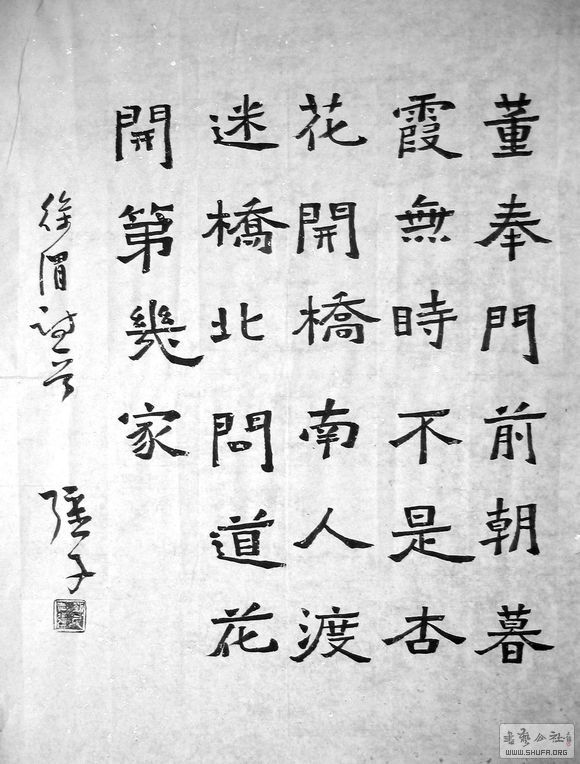 董奉門前朝暮
霞無時不是杏
花開橋南人渡
迷橋北問道花
開第幾家
徐渭詩一首
孫子
書藝公社
WWW.SHUFA.ORG